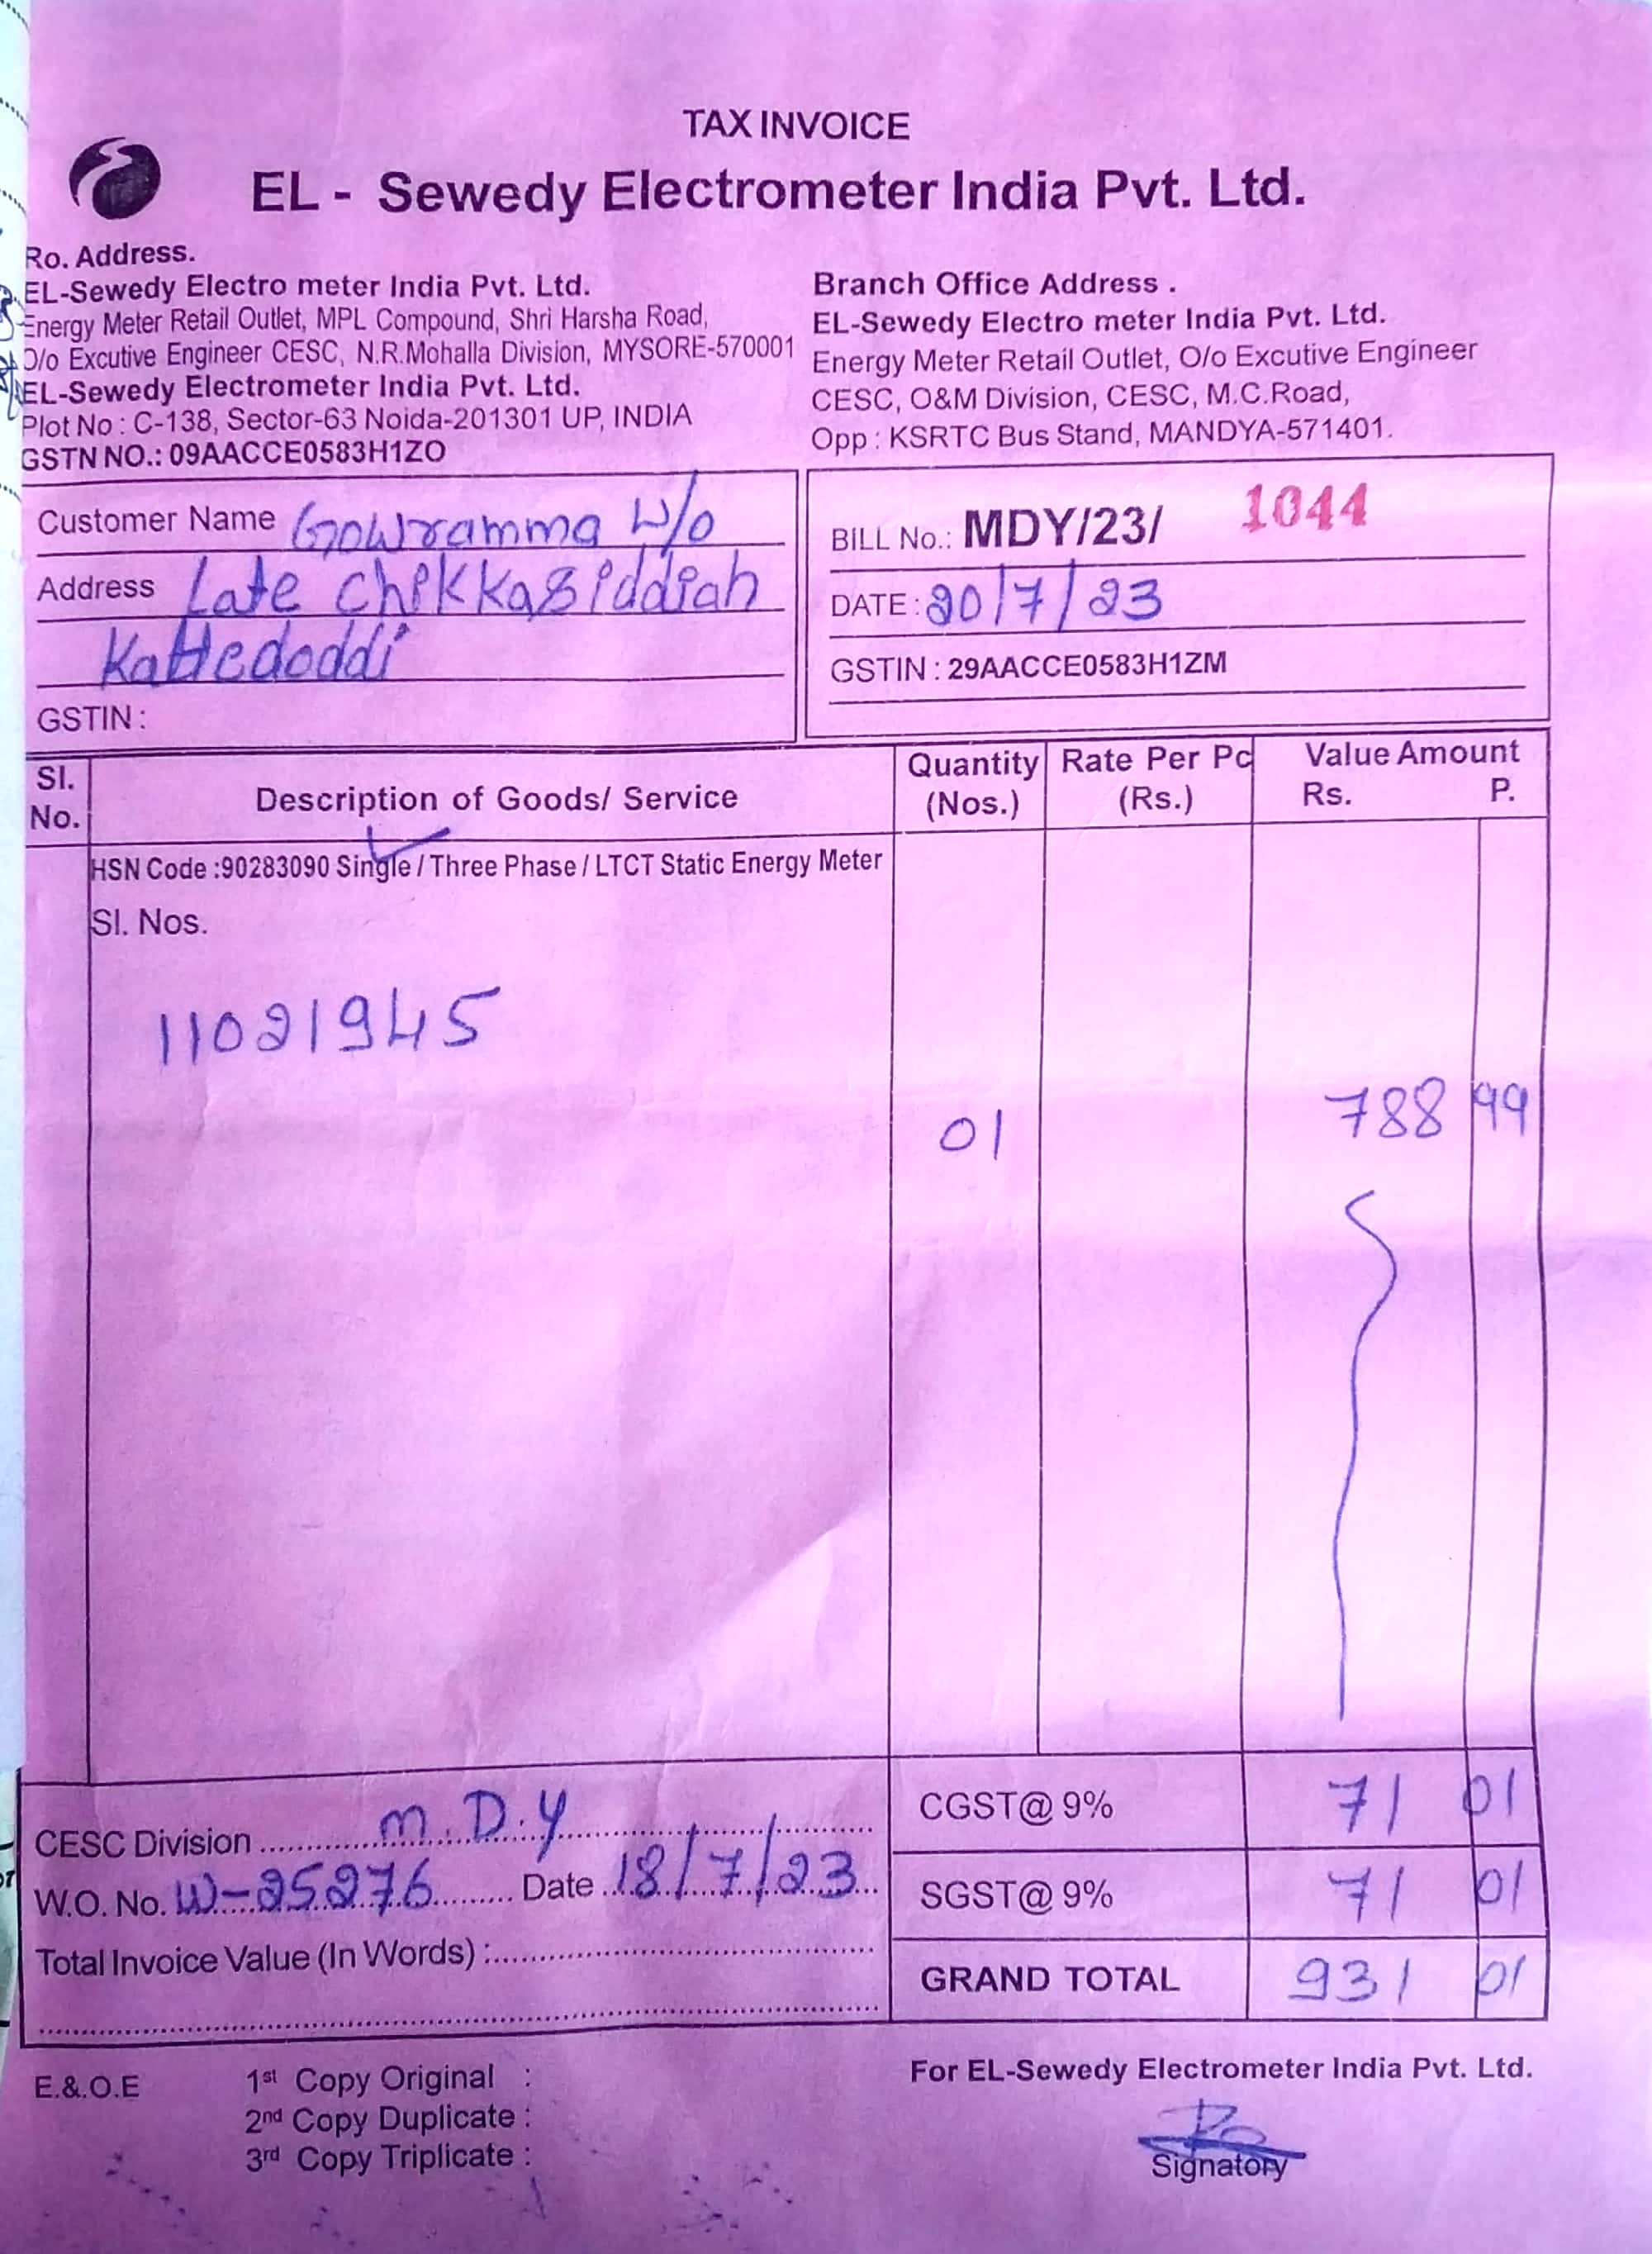 TAX INVOICE
EL - Sewedy Electrometer India Pvt. Ltd.
Ro. Address.
EL-Sewedy Electro meter India Pvt. Ltd.
Energy Meter Retail Outlet, MPL Compound, Shri Harsha Road,
O/o Excutive Engineer CESC, N.R.Mohalla Division, MYSORE-570001
EL-Sewedy Electrometer India Pvt. Ltd.
Plot No : C-138, Sector-63 Noida-201301 UP, INDIA
GSTN NO.: 09AACCE0583H1ZO
Branch Office Address .
EL-Sewedy Electro meter India Pvt. Ltd.
Energy Meter Retail Outlet, O/o Excutive Engineer
CESC, O&M Division, CESC, M.C.Road,
Opp : KSRTC Bus Stand, MANDYA-571401.
Customer Name Gowramma W/o
Address Late Chikkasiddiah
Kattedoddi
GSTIN :
BILL No.: MDY/23/ 1044
DATE : 20/7/23
GSTIN : 29AACCE0583H1ZM
Sl. No. Description of Goods/ Service Quantity (Nos.) Rate Per Pc (Rs.) Value Amount Rs. P.
HSN Code :90283090 Single / Three Phase / LTCT Static Energy Meter
Sl. Nos.
11021945
01 788 99
CESC Division M.D.Y
W.O. No. W-25276 Date 18/7/23
Total Invoice Value (In Words) :
CGST@ 9% 71 01
SGST@ 9% 71 01
GRAND TOTAL 931 01
E.&.O.E
1st Copy Original :
2nd Copy Duplicate :
3rd Copy Triplicate :
For EL-Sewedy Electrometer India Pvt. Ltd.
Signatory